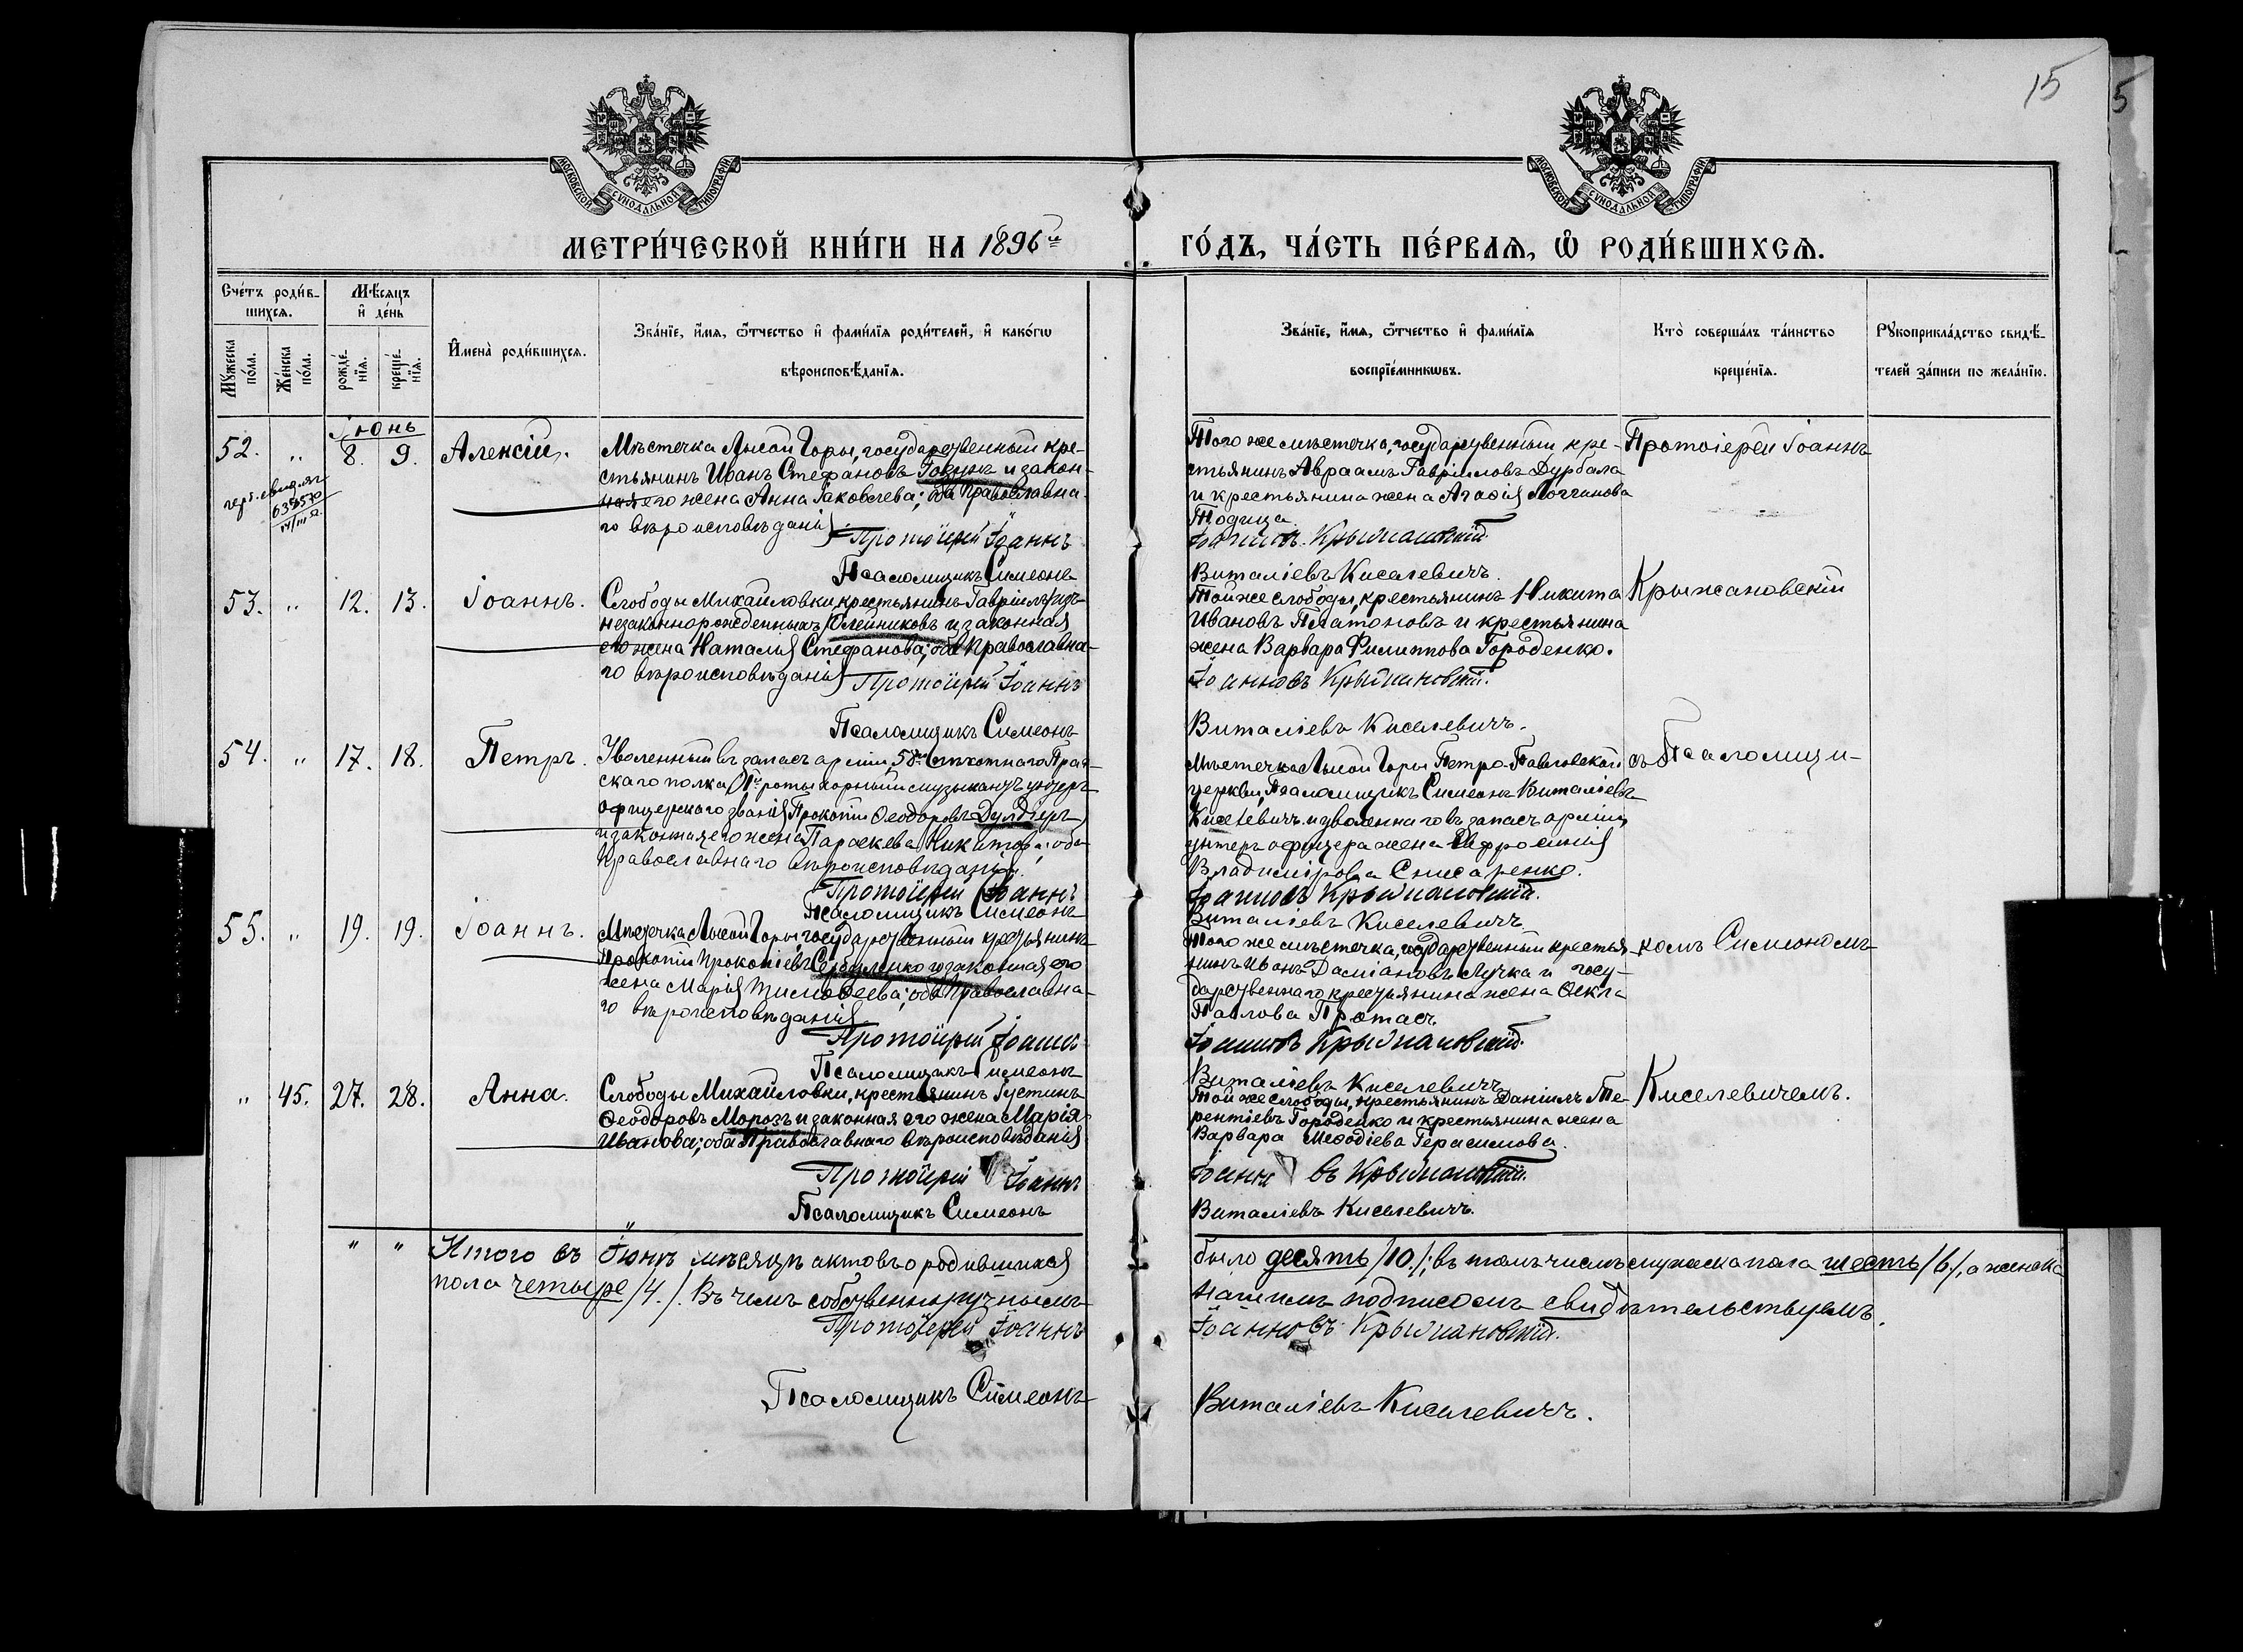 15
5
МОСКОВСКОЙ СѴНОДАЛЬНОЙ ТИПОГРАФІИ
МОСКОВСКОЙ СѴНОДАЛЬНОЙ ТИПОГРАФІИ
МЕТРИ́ЧЕСКОЙ КНИ́ГИ НА 1896й
ГО́ДЪ, ЧА́СТЬ ПЕ́РВАЯ, Ѡ҆ РОДИ́ВШИХСЯ.
Сче́тъ роди́в-
шихся.
Мѣ́сяцъ
и҆ де́нь
Мꙋ́жеска
по́ла.
Же́нска
по́ла.
рожде́-
нїя.
креще́-
нїя.
И҆мена̀ роди́вшихся.
Зва́нїе, и҆́мя, ѻ҆́тчество и҆ фами́лїя роди́телей, и҆ како́гѡ
вѣроисповѣ́данїя.
Зва́нїе, и҆́мя, ѻ҆́тчество и҆ фами́лїя
воспрїе́мникѡвъ.
Кто̀ соверша́лъ та́инство
креще́нїя.
Рꙋкоприкла́дство свидѣ́-
телей за́писи по жела́нїю.
Іюнь
52. " 8. 9. Алексій.
Мѣстечка Лысой Горы, государственный кре-
стьянинъ Иванъ Стефановъ и закон-
ная его жена Анна Іаковлева; оба православна-
го вѣроисповѣданія.
Протоіерей Іоаннъ
Псаломщикъ Симеонъ
Того же мѣстечка, государственный кре-
стьянинъ Авраамъ Гавріиловъ Дурбала
и крестьянина жена Агафія Логгинова
Іоанновъ Крыжановскій.
Виталіевъ Киселевичъ.
Протоіерей Іоаннъ
53. " 12. 13. Іоаннъ.
Слободы Михайловки, крестьянинъ Гавріилъ /изъ
незаконнорожденныхъ/ Олейниковъ и законная
его жена Наталія Стефанова; оба православна-
го вѣроисповѣданія
Протоіерей Іоаннъ
Псаломщикъ Симеонъ
Той же слободы, крестьянинъ Никита
Ивановъ Платоновъ и крестьянина
жена Варвара Филиппова Городенко.
Іоанновъ Крыжановскій.
Виталіевъ Киселевичъ.
Крыжановскій
54. " 17. 18. Петръ.
Уволенный въ запасъ арміи, 58го пѣхотнаго Праг-
скаго полка, роты хорный музыкантъ унтеръ
офицерскаго званія Прокопій Ѳеодоровъ
и законная его жена Параскева Никитова; оба
православнаго вѣроисповѣданія.
Протоіерей Іоаннъ
Псаломщикъ Симеонъ
Мѣстечка Лысой Горы Петро-Павловской
церкви, Псаломщикъ Симеонъ Виталіевъ
Киселевичъ и уволеннаго въ запасъ арміи,
унтеръ офицера жена Евфросинія
Владимірова Снисаренко.
Іоанновъ Крыжановскій.
Виталіевъ Киселевичъ
съ Псаломщи-
55. " 19. 19. Іоаннъ.
Мѣстечка Лысой Горы, государственный крестьянинъ
Прокопій Прокопіевъ и законная его
жена Марія Тимоѳеева; оба православна-
го вѣроисповѣданія.
Протоіерей Іоаннъ
Псаломщикъ Симеонъ
Того же мѣстечка, государственный крестья-
нинъ Иванъ Даміановъ Лучка и госу-
дарственнаго крестьянина жена Ѳекла
Павлова Протас.
Іоанновъ Крыжановскій.
Виталіевъ Киселевичъ
комъ Симеономъ
" 45. 27. 28. Анна.
Слободы Михайловки, крестьянинъ Іустинъ
Ѳеодоровъ Морозъ и законная его жена Марія
Иванова; оба Православнаго вѣроисповѣданія
Протоіерей Іоаннъ
Псаломщикъ Симеонъ
Той же слободы, крестьянинъ Даніилъ Те-
рентіевъ Городенко и крестьянина жена
Варвара Меѳодіева Герасимова.
Іоанновъ Крыжановскій.
Виталіевъ Киселевичъ.
Киселевичемъ.
" " Итого въ Іюнѣ мѣсяцѣ актовъ о родившихся
было десять /10./; въ томъ числѣ мужеска пола шесть /6./, а женска
пола четыре /4./. Въ чемъ собственноручнымъ
нашимъ подписомъ свидѣтельствуемъ.
Протоіерей Іоаннъ
Іоанновъ Крыжановскій.
Псаломщикъ Симеонъ
Виталіевъ Киселевичъ.